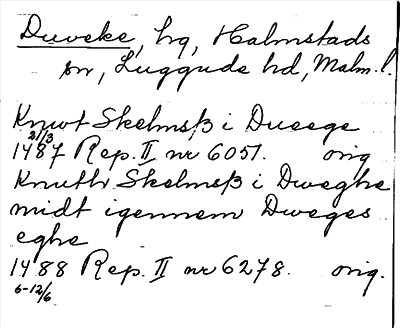 Duveke, hg, Halmstads
sn, Luggude hd, Malm. l.
Knwt Skelmsß i Dueege
21/3
1487 Rep. II nr 6051. orig
Knuth Skelmsß i Dweghe
midt igennem Dweges
eghe
1488 Rep. II nr 6278. orig.
6-12/6